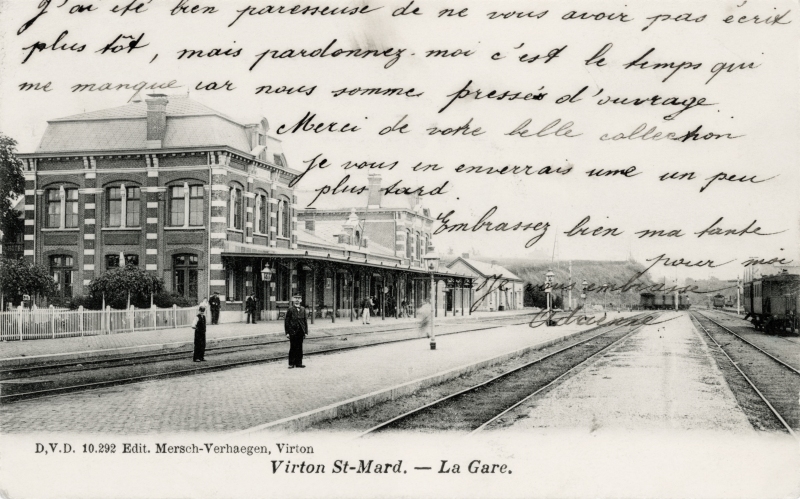 J'ai été bien paresseuse de ne vous avoir pas écrit
plus tôt, mais pardonnez-moi c'est le temps qui
me manque car nous somme pressés d'ouvrage
Merci de votre belle collection
Je vous en enverrais une un peu
plus tard
Embrassez bien ma tante
pour moi
Je vous embrasse
D.V.D. 10.292 Edit. Mersch-Verhaegen, Virton
Virton St-Mard. — La Gare.